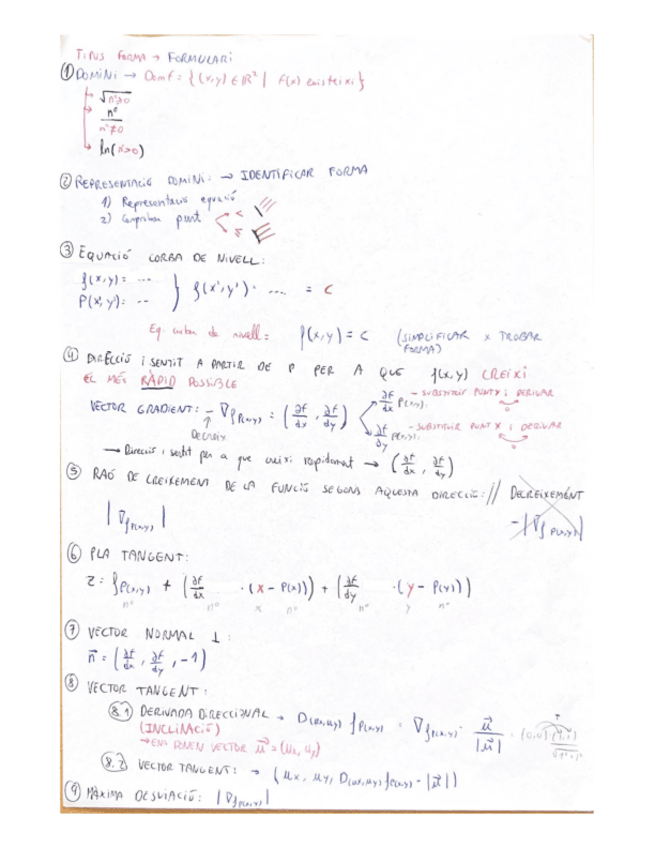 TIPUS FORMA → FORMULARI
① DOMINI → Dom f = { (x,y) ∈ ℝ² | f(x) existeixi }
√n°≥0
n°
n°≠0
ln(x>0)
② REPRESENTACIÓ DOMINI: → IDENTIFICAR FORMA
1) Representació equació
2) Comprobem punt < ≤
③ EQUACIÓ CORBA DE NIVELL:
f(x,y) = ...
P(x',y') = -- } f(x',y') = .... = C
Eq. corba de nivell = f(x,y) = C (SIMPLIFICAR x TROBAR FORMA)
④ DIRECCIÓ I SENTIT A PARTIR DE P PER A QUE f(x,y) CREIXI
EL MÉS RÀPID POSSIBLE
VECTOR GRADIENT: - ∇f P(x,y) = (∂f/dx , ∂f/dy)
∂f/dx P(x,y). - SUBSTITUIR PUNT Y i DERIVAR
∂f/dy P(x,y). - SUBSTITUIR PUNT X i DERIVAR
Decreix
→ Direcció i sentit per a que creixi rapidament → (∂f/dx , ∂f/dy)
⑤ RAÓ DE CREIXEMENT DE LA FUNCIÓ SEGONS AQUESTA DIRECCIÓ: // DECREIXEMENT
|∇f P(x,y)| -|∇f P(x,y)|
⑥ PLA TANGENT:
z = f P(x,y) + (∂f/dx · (x - P(x))) + (∂f/dy · (y - P(y)))
n° n° x n° n° y n°
⑦ VECTOR NORMAL ⊥ :
n⃗ = (∂f/dx , ∂f/dy , -1)
⑧ VECTOR TANGENT:
8.1 DERIVADA DIRECCIONAL → D(ux,uy) f P(x,y) = ∇f P(x,y) · u⃗/|u⃗|
(INCLINACIÓ)
→ ENS DONEN VECTOR u⃗ = (ux, uy)
8.2 VECTOR TANGENT: → (ux, uy, D(ux,uy) f P(x,y) · |u⃗|)
⑨ MÀXIMA DESVIACIÓ: |∇f P(x,y)|